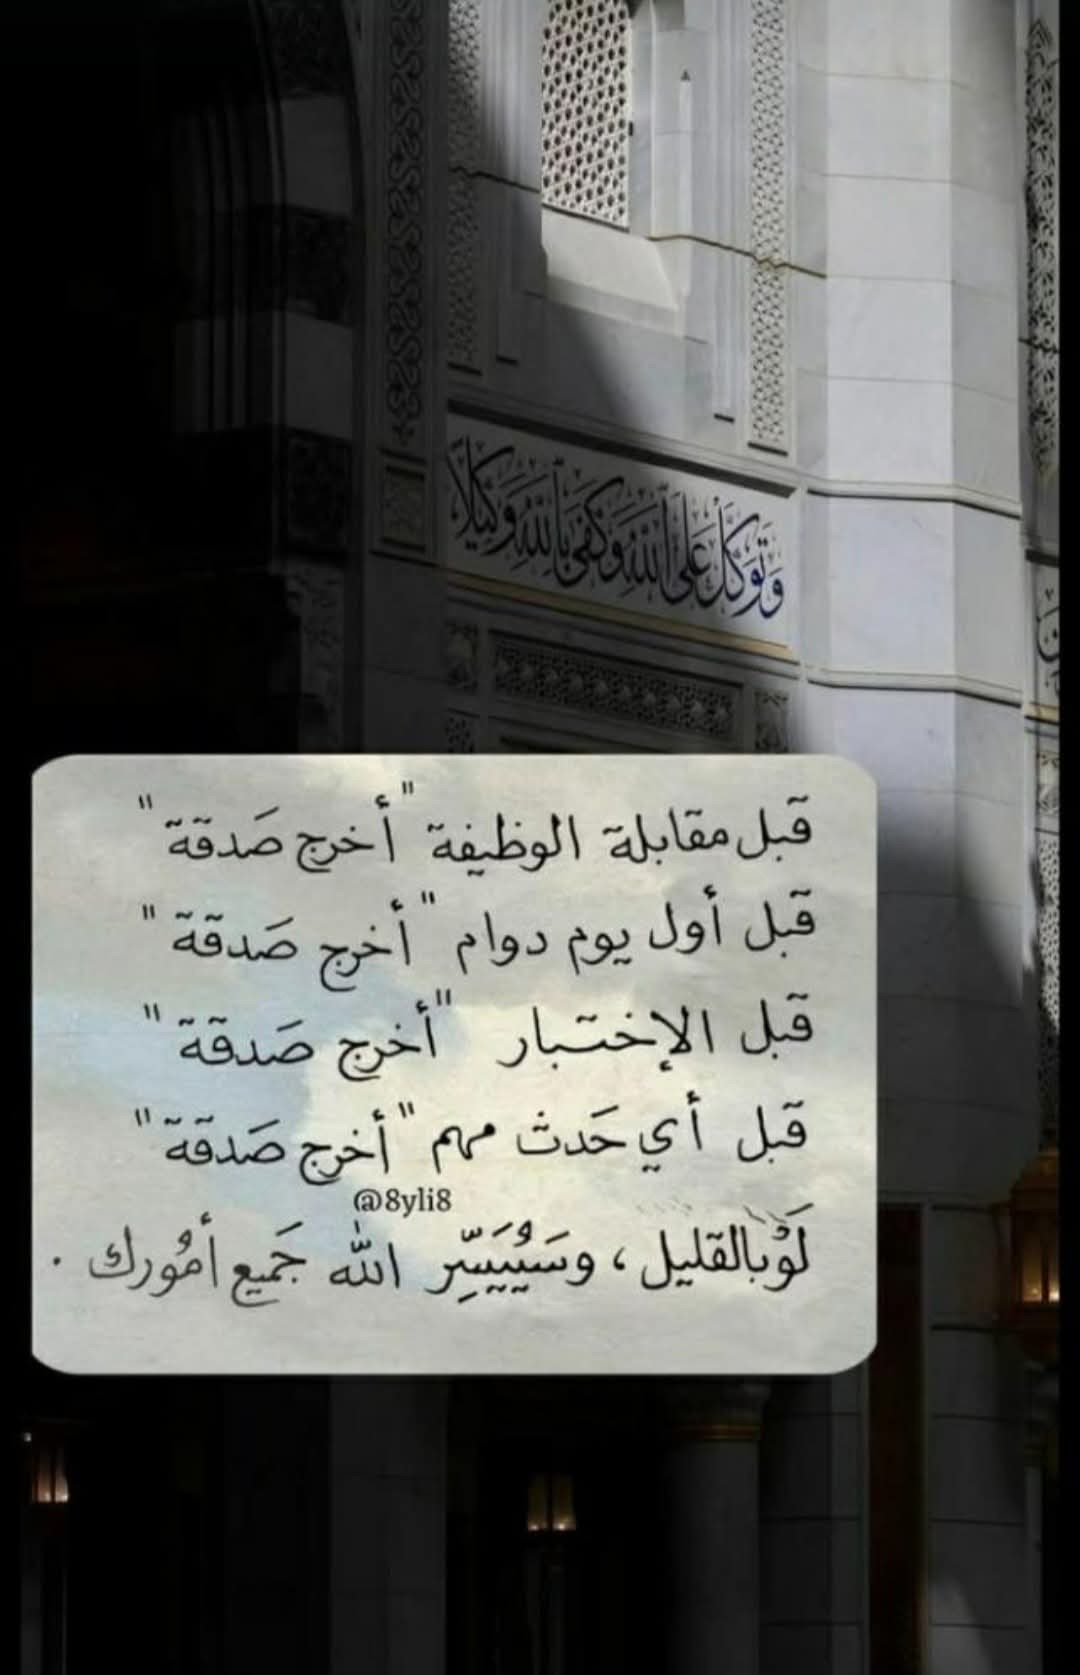 وَتَوَكَّلْ عَلَى ٱللَّهِ وَكَفَىٰ بِٱللَّهِ وَكِيلًا
قبل مقابلة الوظيفة "أخرج صَدقة"
قبل أول يوم دوام "أخرج صَدقة"
قبل الإختبار "أخرج صَدقة"
قبل أي حَدث مهم "أخرج صَدقة"
@8yli8
لَوْبالقليل، وسَيُيَسِّر الله جَميع أمُورك .